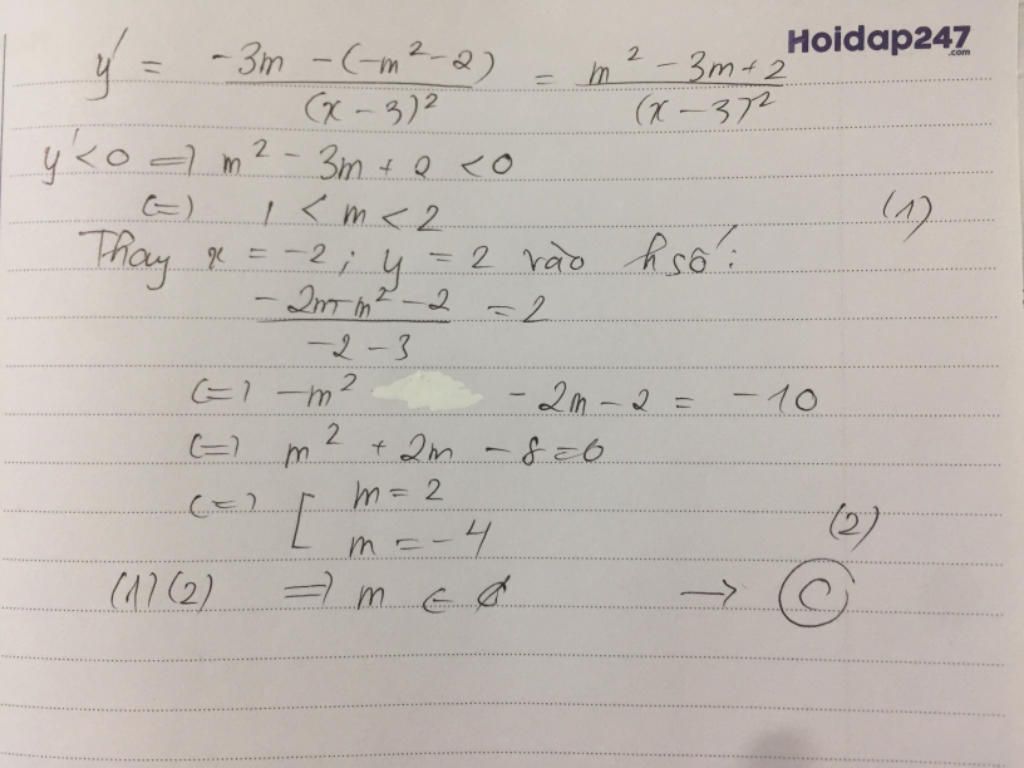 Hoidap247
.com
y' = \frac{-3m - (-m^2 - 2)}{(x - 3)^2} = \frac{m^2 - 3m + 2}{(x - 3)^2}
y' < 0 => m^2 - 3m + 2 < 0
<=> 1 < m < 2 (1)
Thay x = -2; y = 2 vào h số:
\frac{-2m - m^2 - 2}{-2 - 3} = 2
<=> -m^2 - 2m - 2 = -10
<=> m^2 + 2m - 8 = 0
<=> [ m = 2
m = -4 (2)
(1)(2) => m ∈ ∅ → C